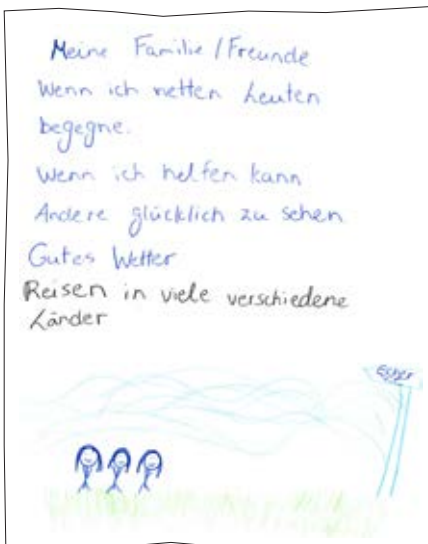 Meine Familie/Freunde
Wenn ich netten Leuten
begegne.
Wenn ich helfen kann
Andere glücklich zu sehen
Gutes Wetter
Reisen in viele verschiedene
Länder